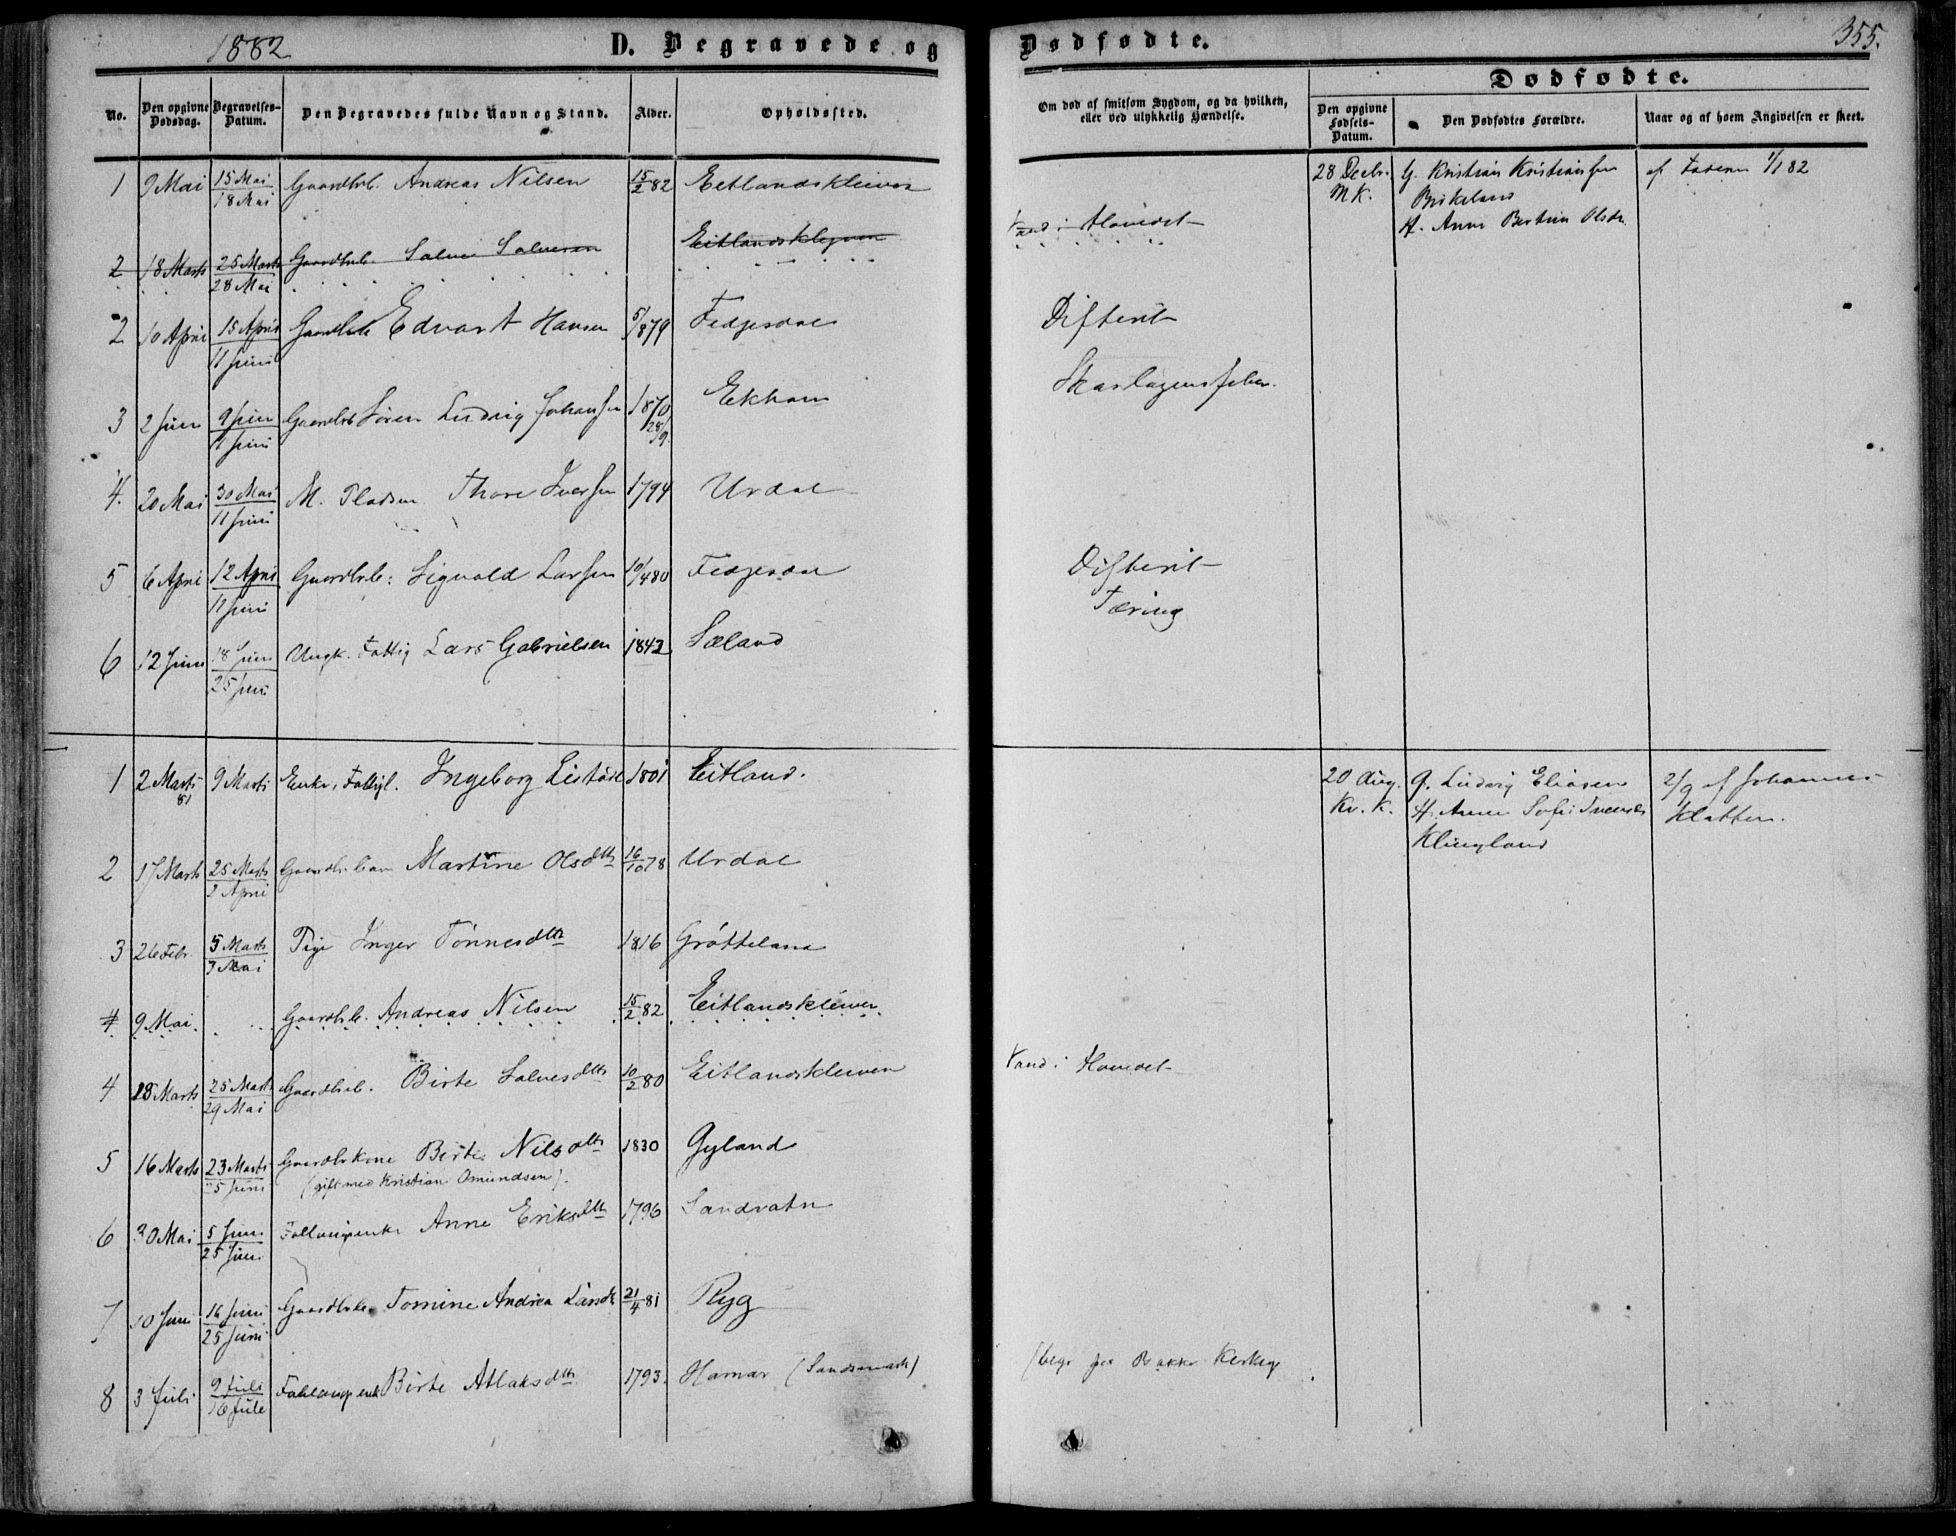 1882
D. Begravede og
Dødfødte.
355.
No.
Den opgivne Dødsdag.
Begravelses-Datum.
Den Begravedes fulde Navn og Stand.
Alder.
Opholdssted.
Om død af smitsom Sygdom, og da hvilken,
eller ved ulykkelig Hændelse.
Dødfødte.
Den opgivne Fødsels-Datum.
Den Dødfødtes Forældre.
Naar og af hvem Angivelsen er skeet.
1 9 Mai 15 Mai Gaardbrb. Andreas Nilsen 15/2 82 Eetlandskleiven
18 Mai
Vand i Hovedet
28 Decbr. G. Kristian Kristiansen af Faderen 1/1 82
M.K. Birkeland
H. Anne Bertine Olsdr.
2 18 Marts 25 Marts Gaardbrb. Salve Salvesen Eitlandskleyven
28 Mai
2 10 April 15 April Gaardbrb Edvart Hansen 5/8 79 Fedgesdal Difterit
11 Juni
3 2 Juni 9 Juni Gaardbrb Sören Ludvig Johansen 1870 Ekhom Skarlagensfeber.
11 Juni 28/9
4. 20 Mai 30 Mai M. Pladsm. Thore Iversen 1794 Urdal
11 Juni
5 6 April 12 April Gaardbrb: Sigvald Larsen 10/4 80 Fedgesdal Difterit
11 Juni
6 12 Juni 18 Juni Ungk. Fattig Lars Gabrielsen 1842 Sæland Tæring
25 Juni
1 2 Marts 9 Marts Enke, Fattigl. Ingeborg 1801 Eitland.
81
20 Aug. G. Ludvig Eliasen 2/9 af Johannes
Kv. K. H. Anne Sofie Klatten.
Klungland
2 17 Marts 25 Marts Gaardbr. barn Martine Olsdtr 16/10 78 Urdal
2 April
3 26 Febr. 5 Marts Pige Inger Tönnesdtr 1816 Grötteland
7 Mai
4 9 Mai Gaardbrb. Andreas Nilsen 15/2 82 Eitlandskleiven
4 18 Marts 25 Marts Gaardbrb. Birte Salvesdtr 10/2 80 Eitlandskleiven Vand i Hovedet
29 Mai
5 16 Marts 23 Marts Gaardbrkone Birte Nilsdtr 1830 Gyland
5 Juni (gift med Kristian Omundsen).
6 30 Mai 5 Juni Follaugsenke Anne Eriksdtr 1796 Sandvatn
25 Juni
7 10 Juni 16 Juni Gaardbrb. Tomine Andrea Larsdtr 21/4 81 Ryg
25 Juni
8 3 Juli 9 Juli Follaugsenke Birte Atlaksdtr 1793. Hamar (Sandsmark) (begr. paa Bakke Kirkeg
16 Juli